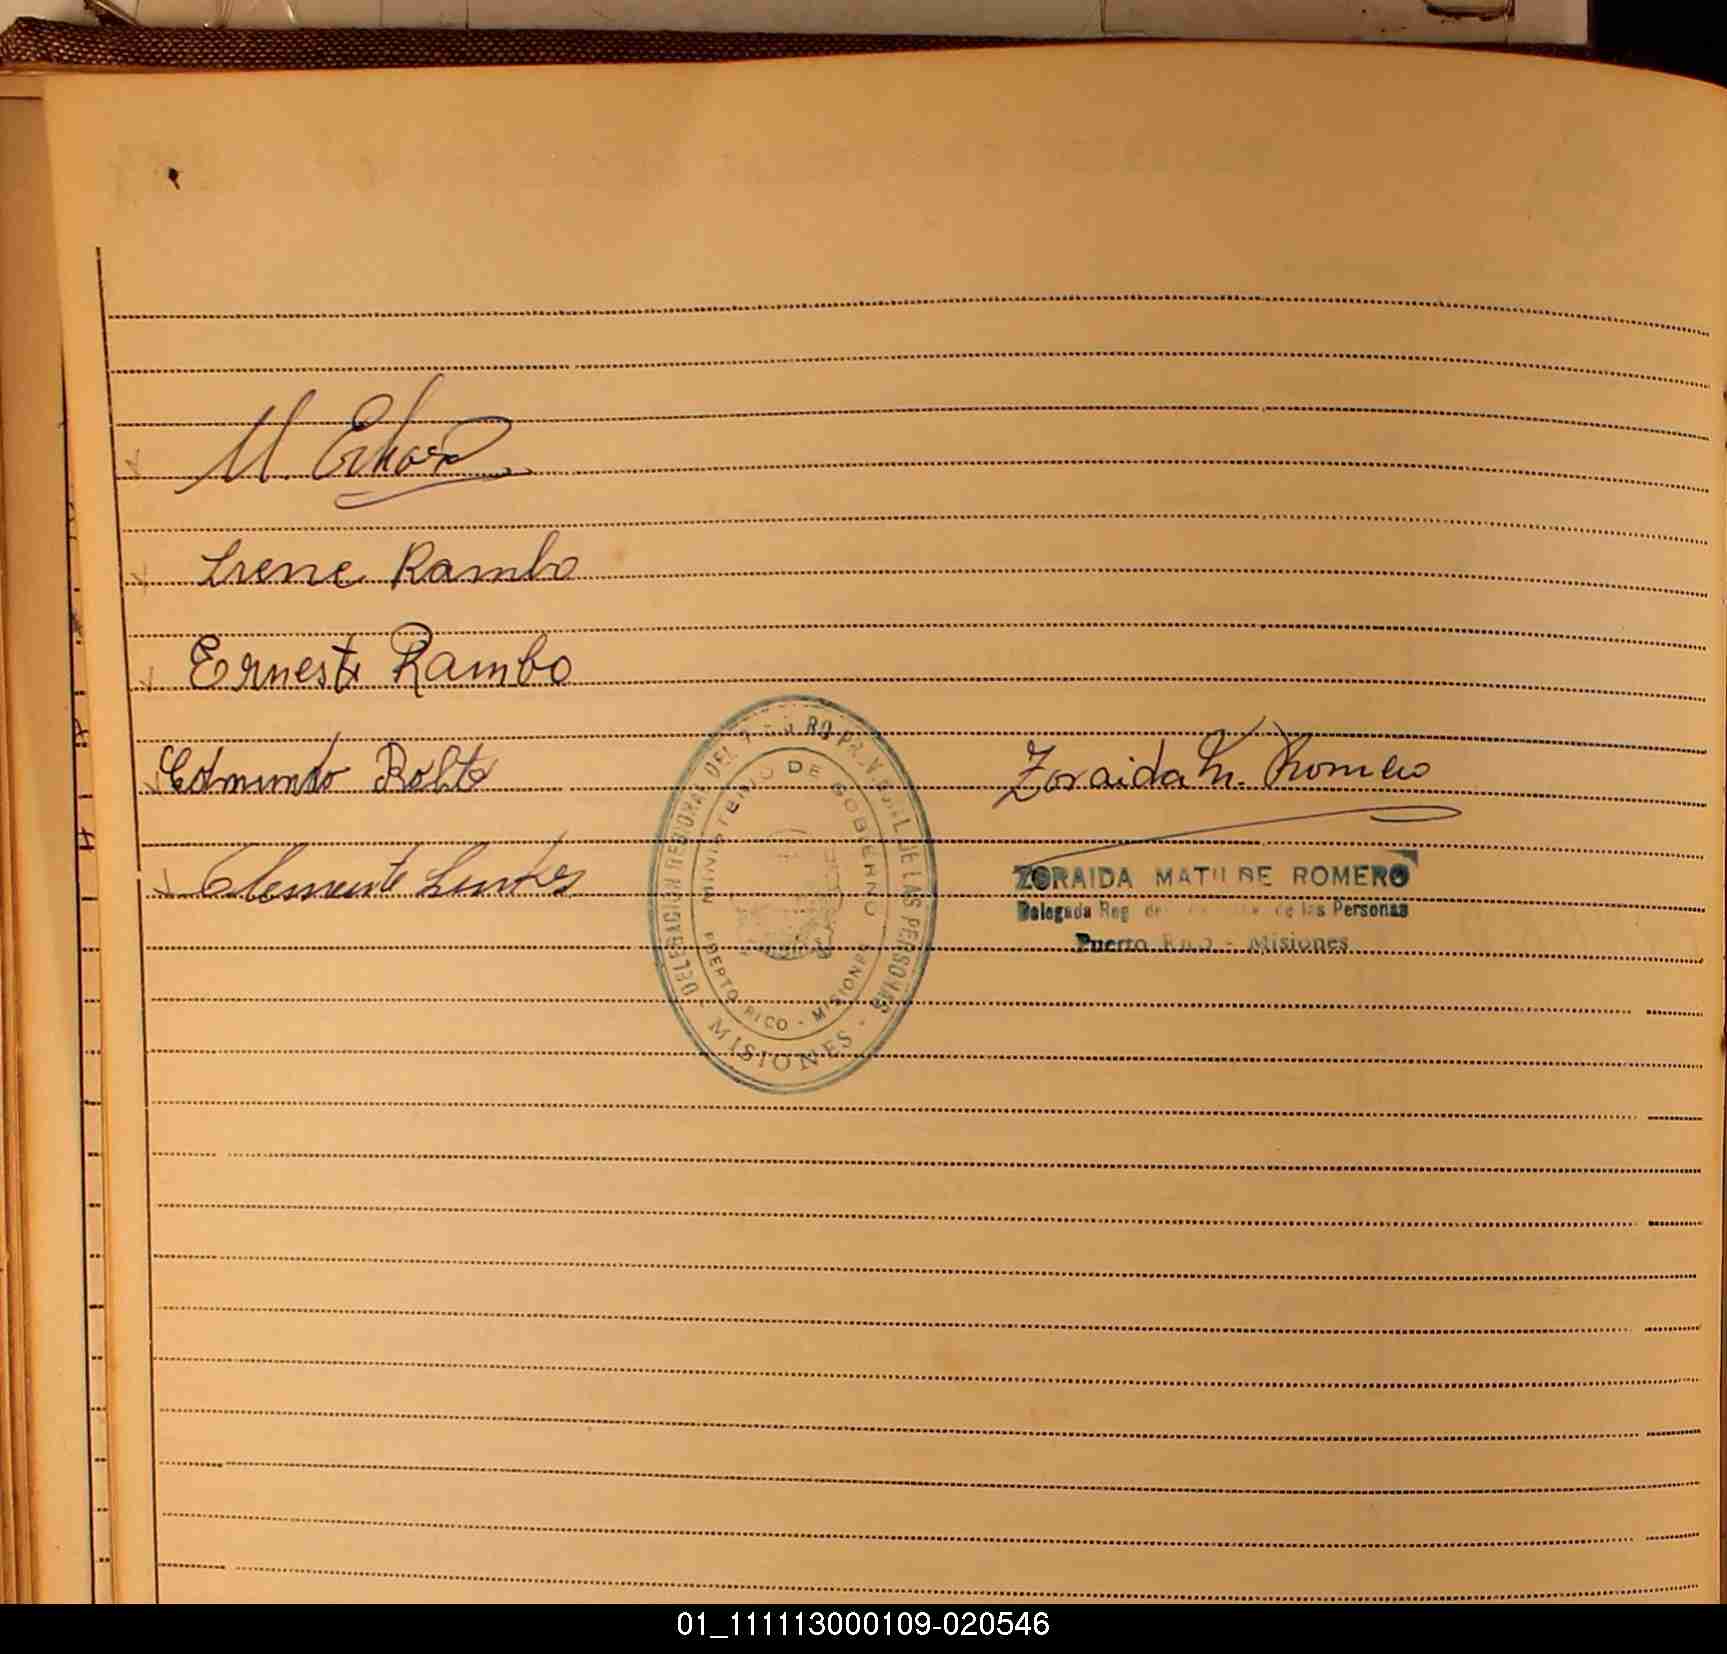 Irene Rambo
Ernesto Rambo
Edmundo
Clemente
Zoraida M. Romero
ZORAIDA MATILDE ROMERO
Delegada Reg. de las Personas
Puerto Rico - Misiones
DELEGACION REGIONAL DEL REGISTRO PROVINCIAL DE LAS PERSONAS
MINISTERIO DE GOBIERNO
PUERTO RICO - MISIONES
- MISIONES -
01_111113000109-020546